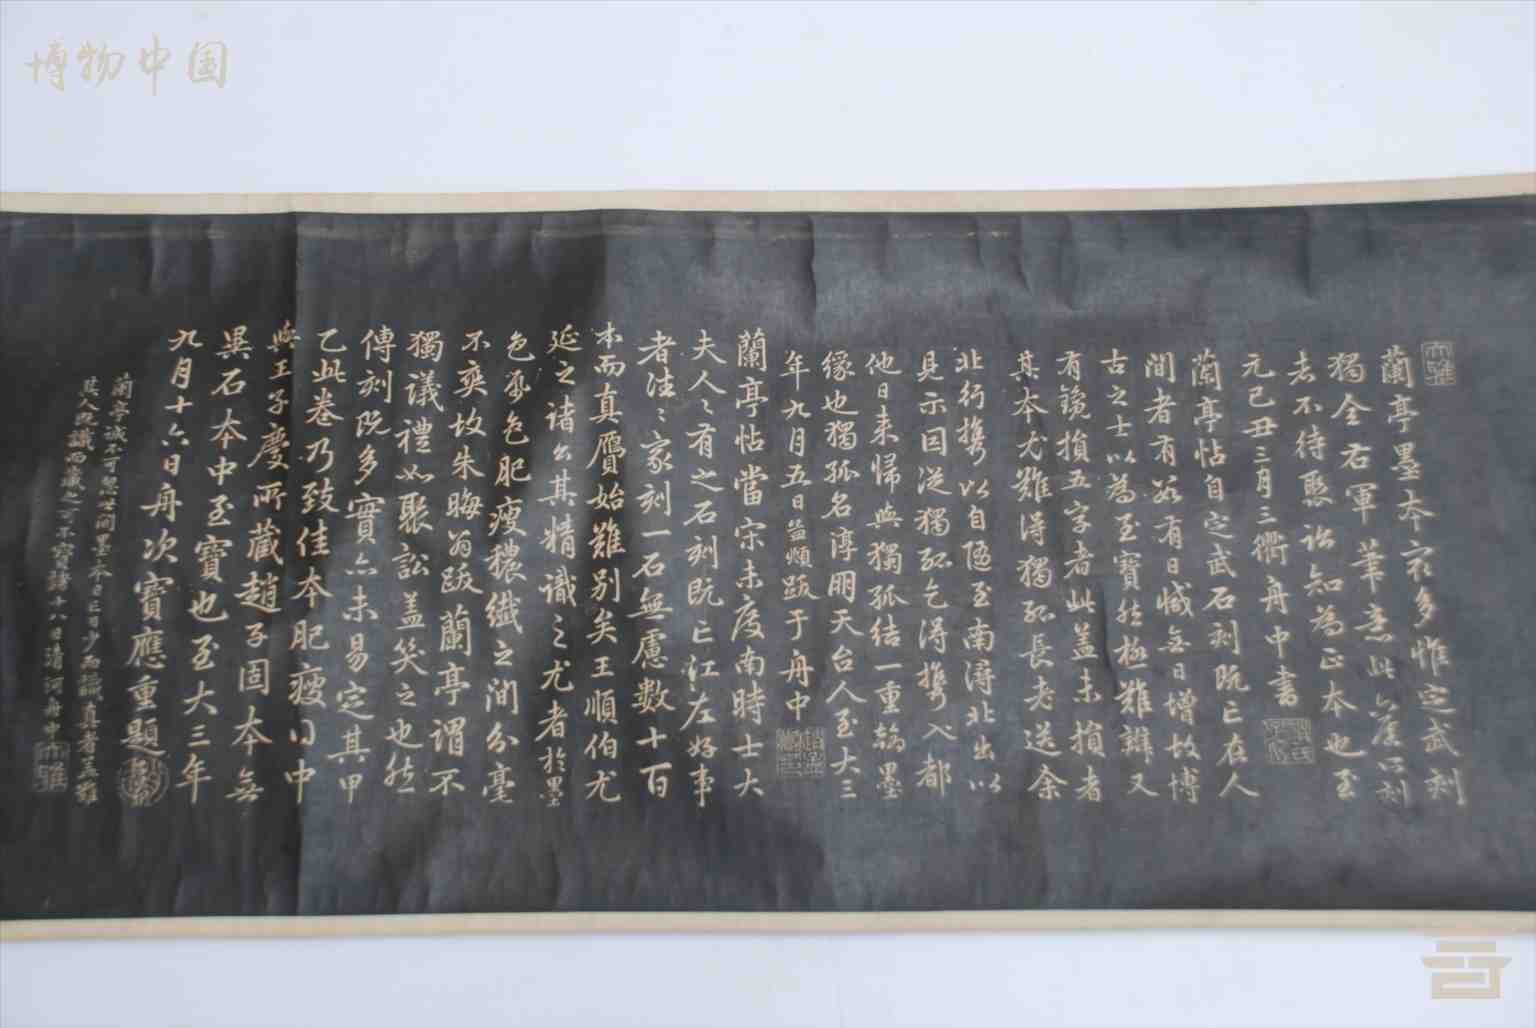 博物中国
大雅
蘭亭墨本最多惟定武刻
獨全右軍筆意此舊所刻
者不待聚訟知為正本也至
元己丑三月三衢舟中書
蘭亭帖自定武石刻既亡在人
間者有數有日减無日增故博
古之士以為至寶然極難辨又
有鐫損五字者此盖未損者
其本尤難得獨孤長老送余
北行攜以自隨至南潯北出以
見示因從獨孤乞得攜入都
他日来歸與獨孤結一重翰墨
緣也獨孤名淳朋天台人至大三
年九月五日孟頫跋于舟中
蘭亭帖當宋未度南時士大
夫人〻有之石刻既亡江左好事
者往〻家刻一石無慮數十百
本而真贗始難別矣王順伯尤
延之諸公其精識之尤者於墨
色紙色肥瘦穠纖之間分毫
不爽故朱晦翁跋蘭亭謂不
獨議禮如聚訟盖笑之也然
傳刻既多實亦未易定其甲
乙此卷乃致佳本肥瘦得中
與王子慶所藏趙子固本無
異石本中至寶也至大三年
九月十六日舟次寶應重題
蘭亭誠不可忽世間墨本日亡日少而識真者益難
其人既識而藏之可不寶諸十八日清河舟中
大雅